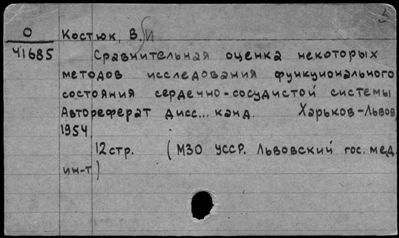 О
41685
Костюк, В. И
Сравнительная оценка некоторых
методов исследования функционального
состояния сердечно-сосудистой системы
Автореферат дисс... канд. Харьков-Львов,
1954.
12 стр. (МЗО УССР. Львовский гос. мед.
ин-т)